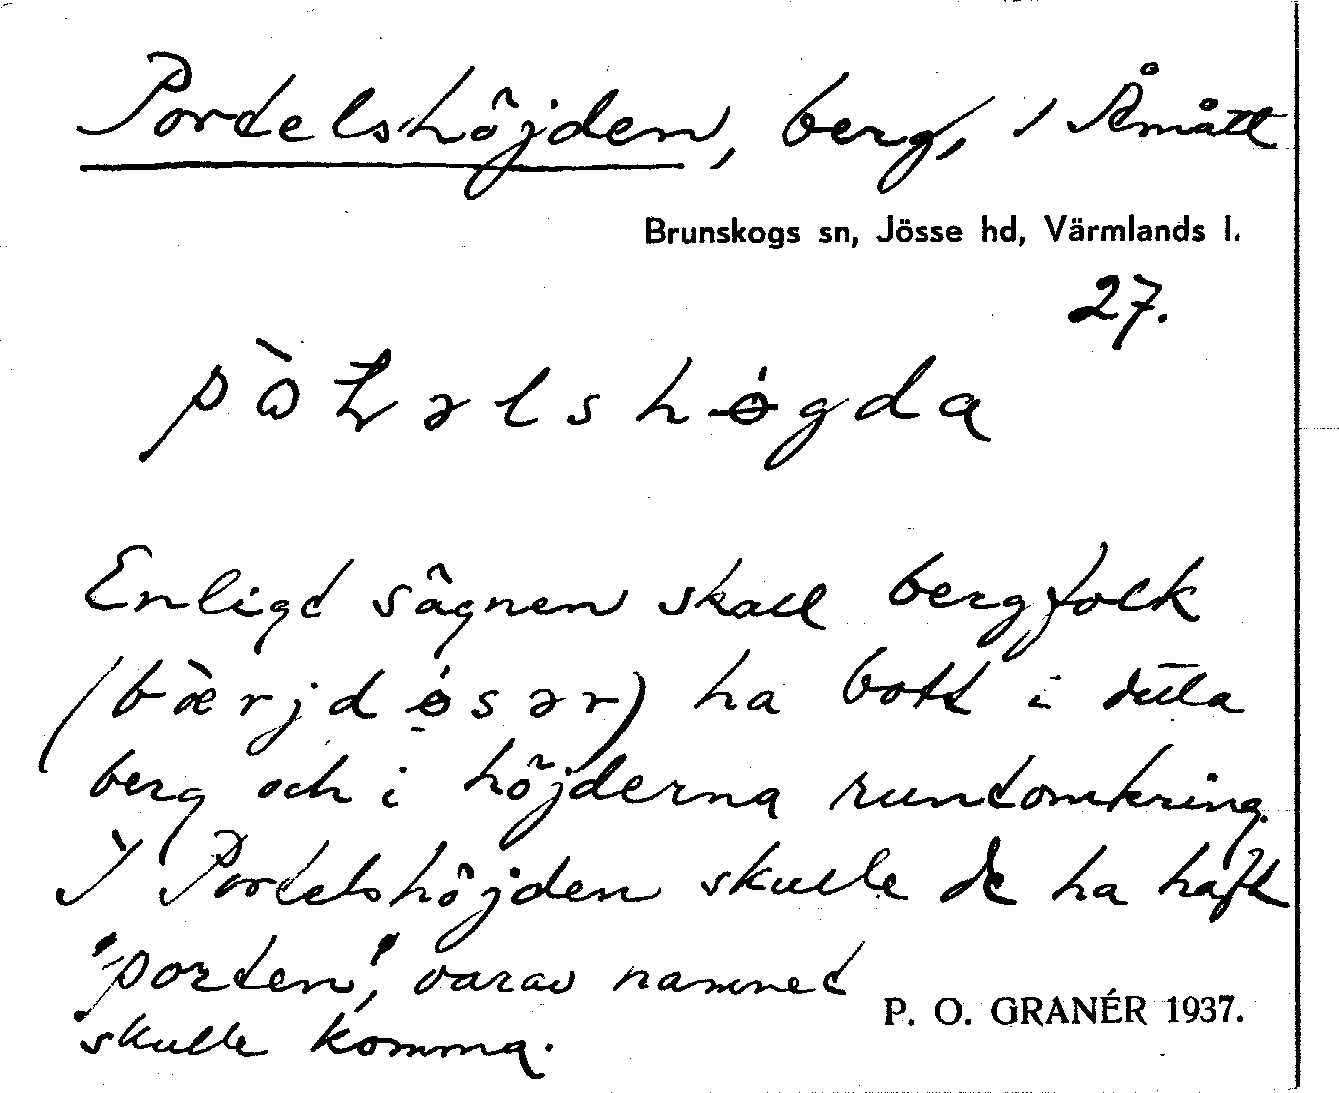 Portelshöjden, berg, / Åmått
Brunskogs sn, Jösse hd, Värmlands l.
27.
Enligt sägnen skall bergfolk
(bærjdøsər) ha bott i detta
berg och i höjderna runtomkring.
I Portelshöjden skulle de ha haft
"porten", varav namnet
P. O. GRANÉR 1937.
skulle komma.